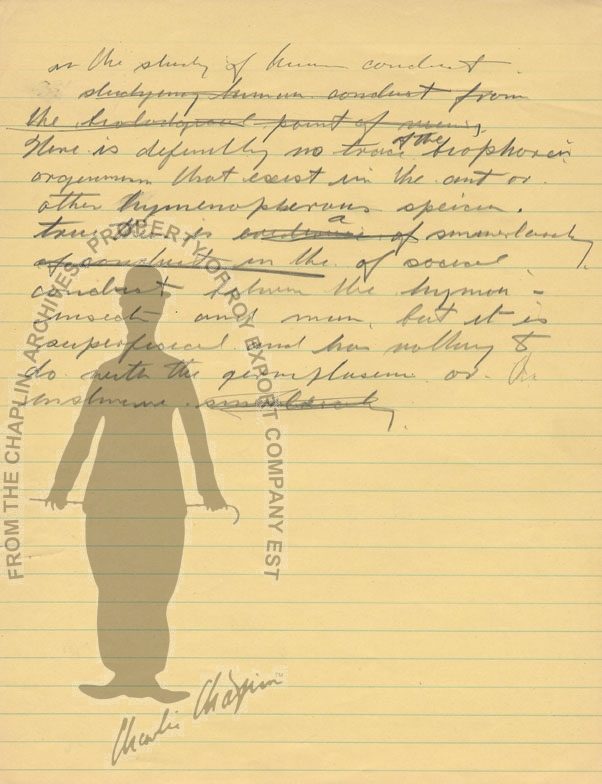 in the study of human conduct.
studying human conduct from
the biological point of view,
there is definitly no trace of the biophoric
organism that exist in the ant or
other hymenopterous specien.
true there is a evidence of simmerlarity
of conduct in the of social
conduct between the hymen-
insect and man, but it is
superficial and has nothing to
do with the germplasm or the
simmlarity.
FROM THE CHAPLIN ARCHIVES. PROPERTY OF ROY EXPORT COMPANY EST
Charlie Chaplin